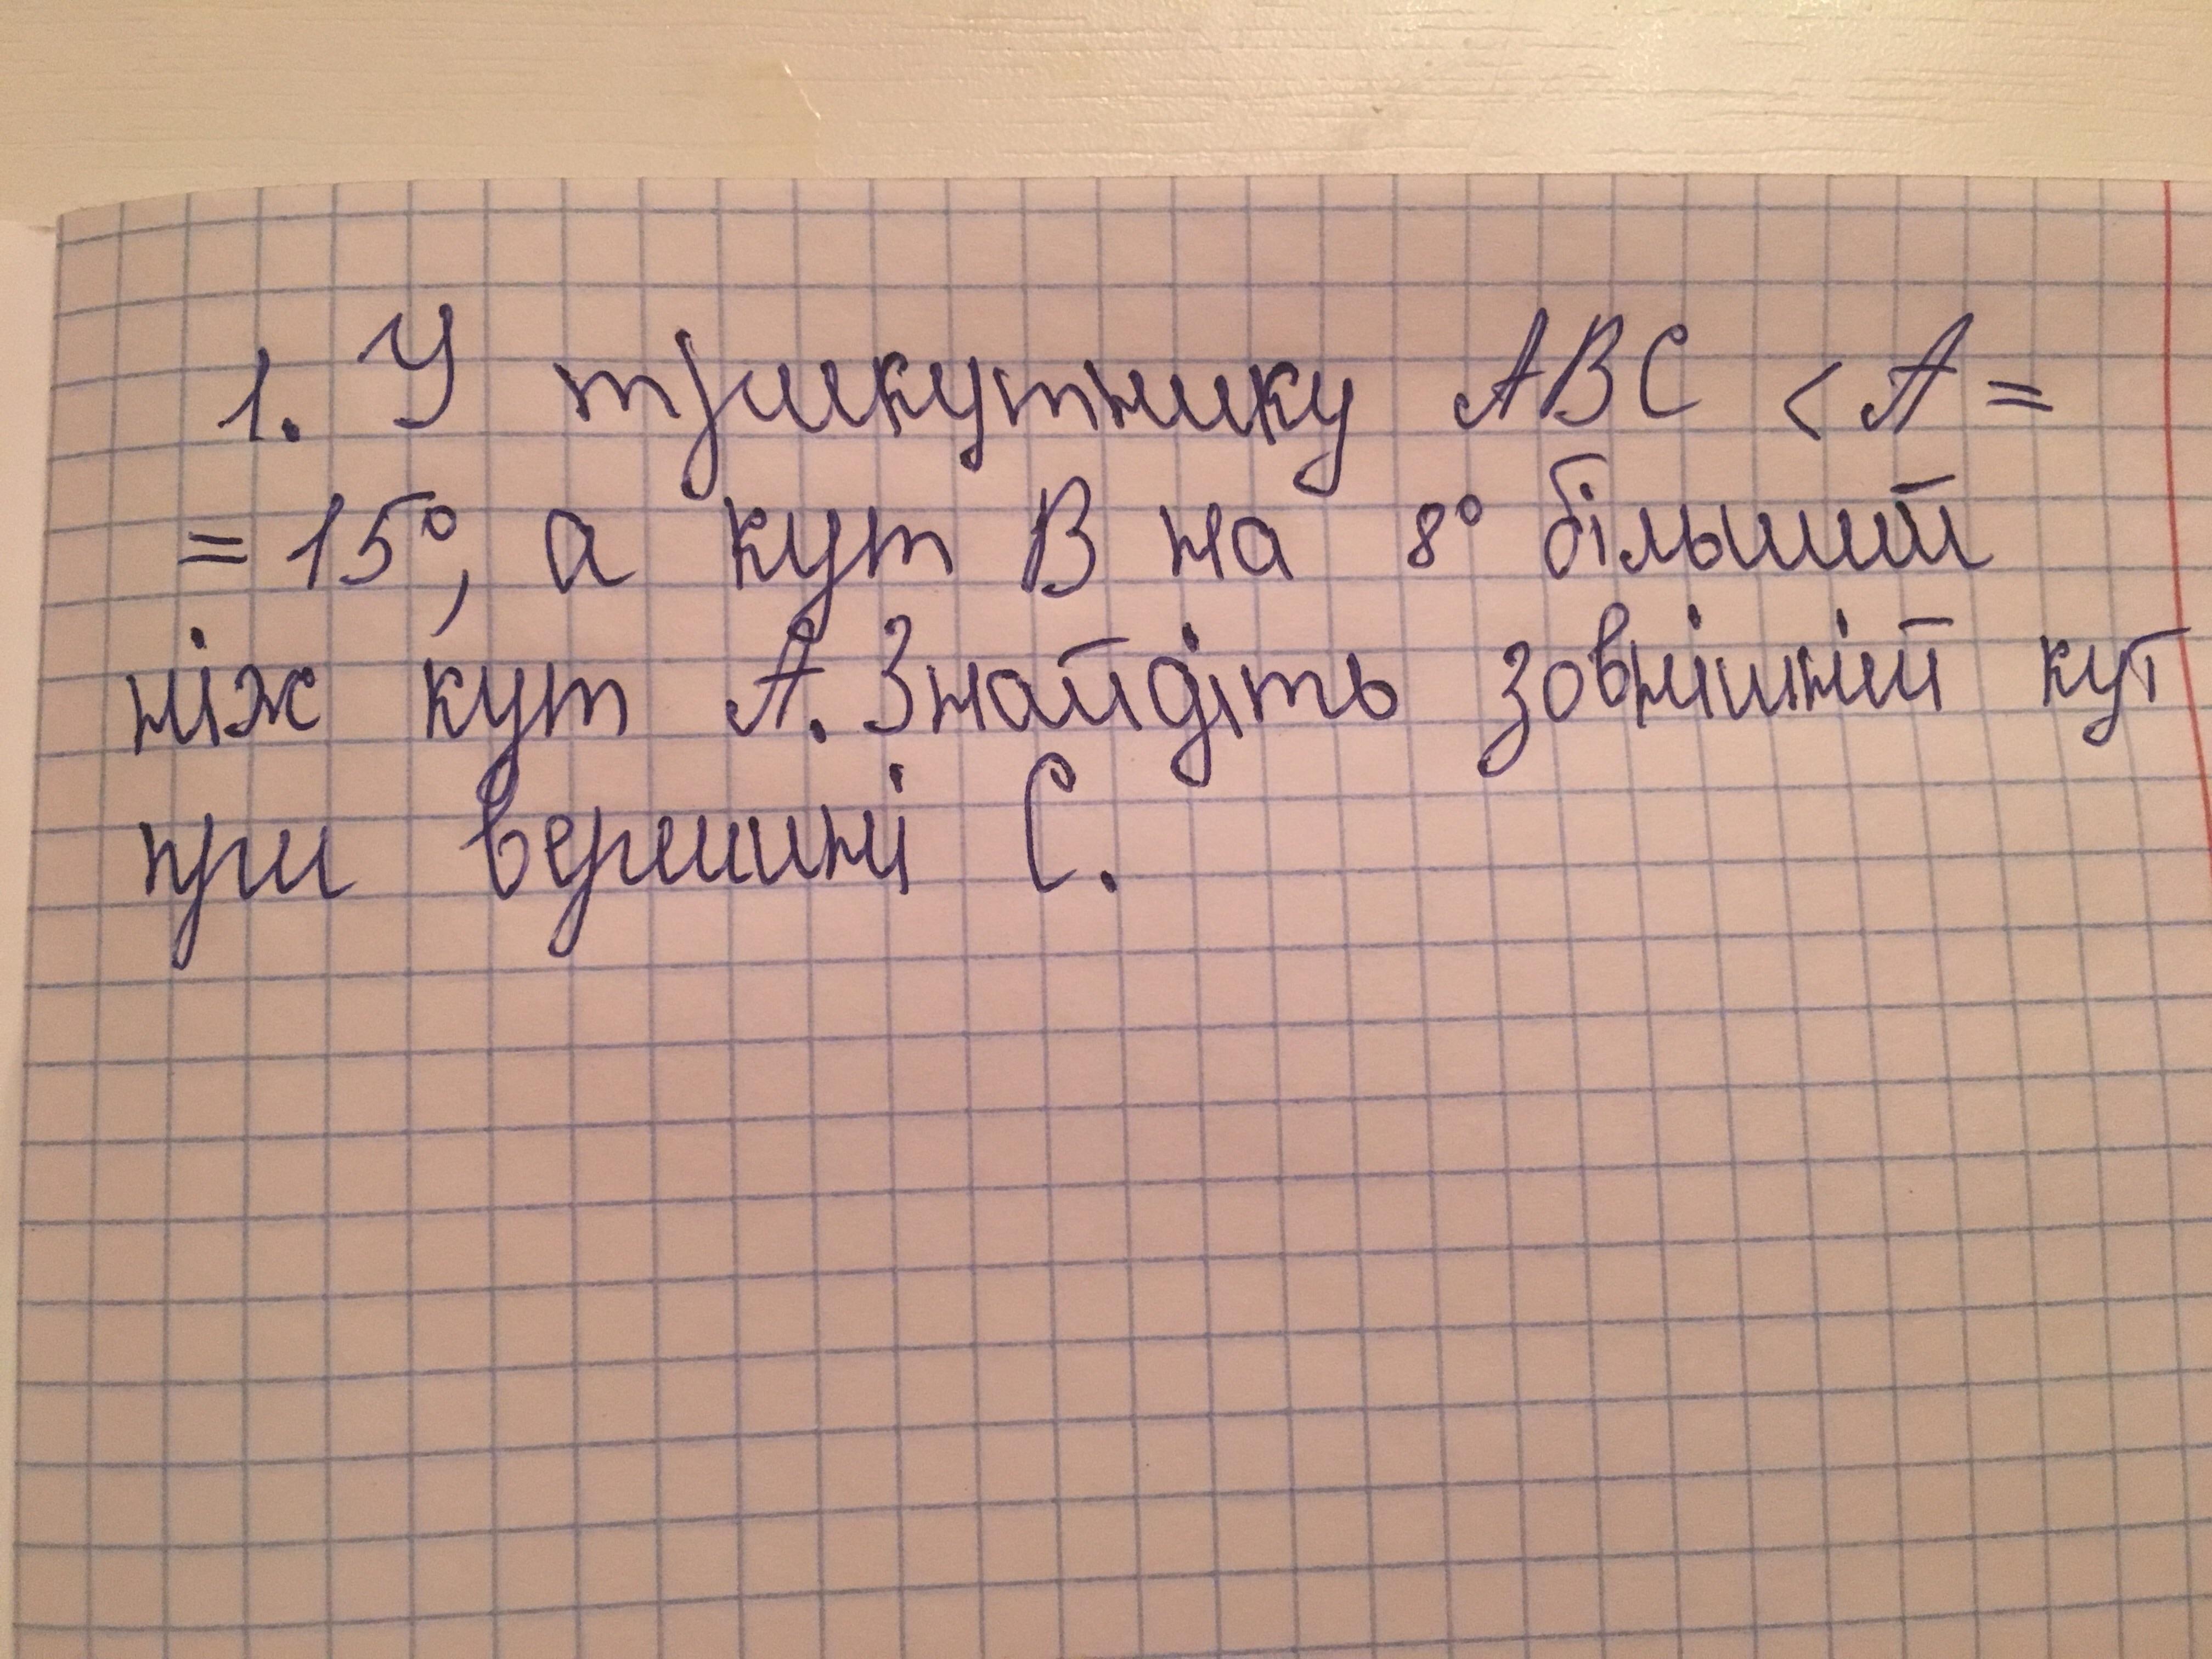 1. У трикутнику ABC < A =
= 15°, а кут B на 8° більший
ніж кут A. Знайдіть зовнішній кут
при вершині C.